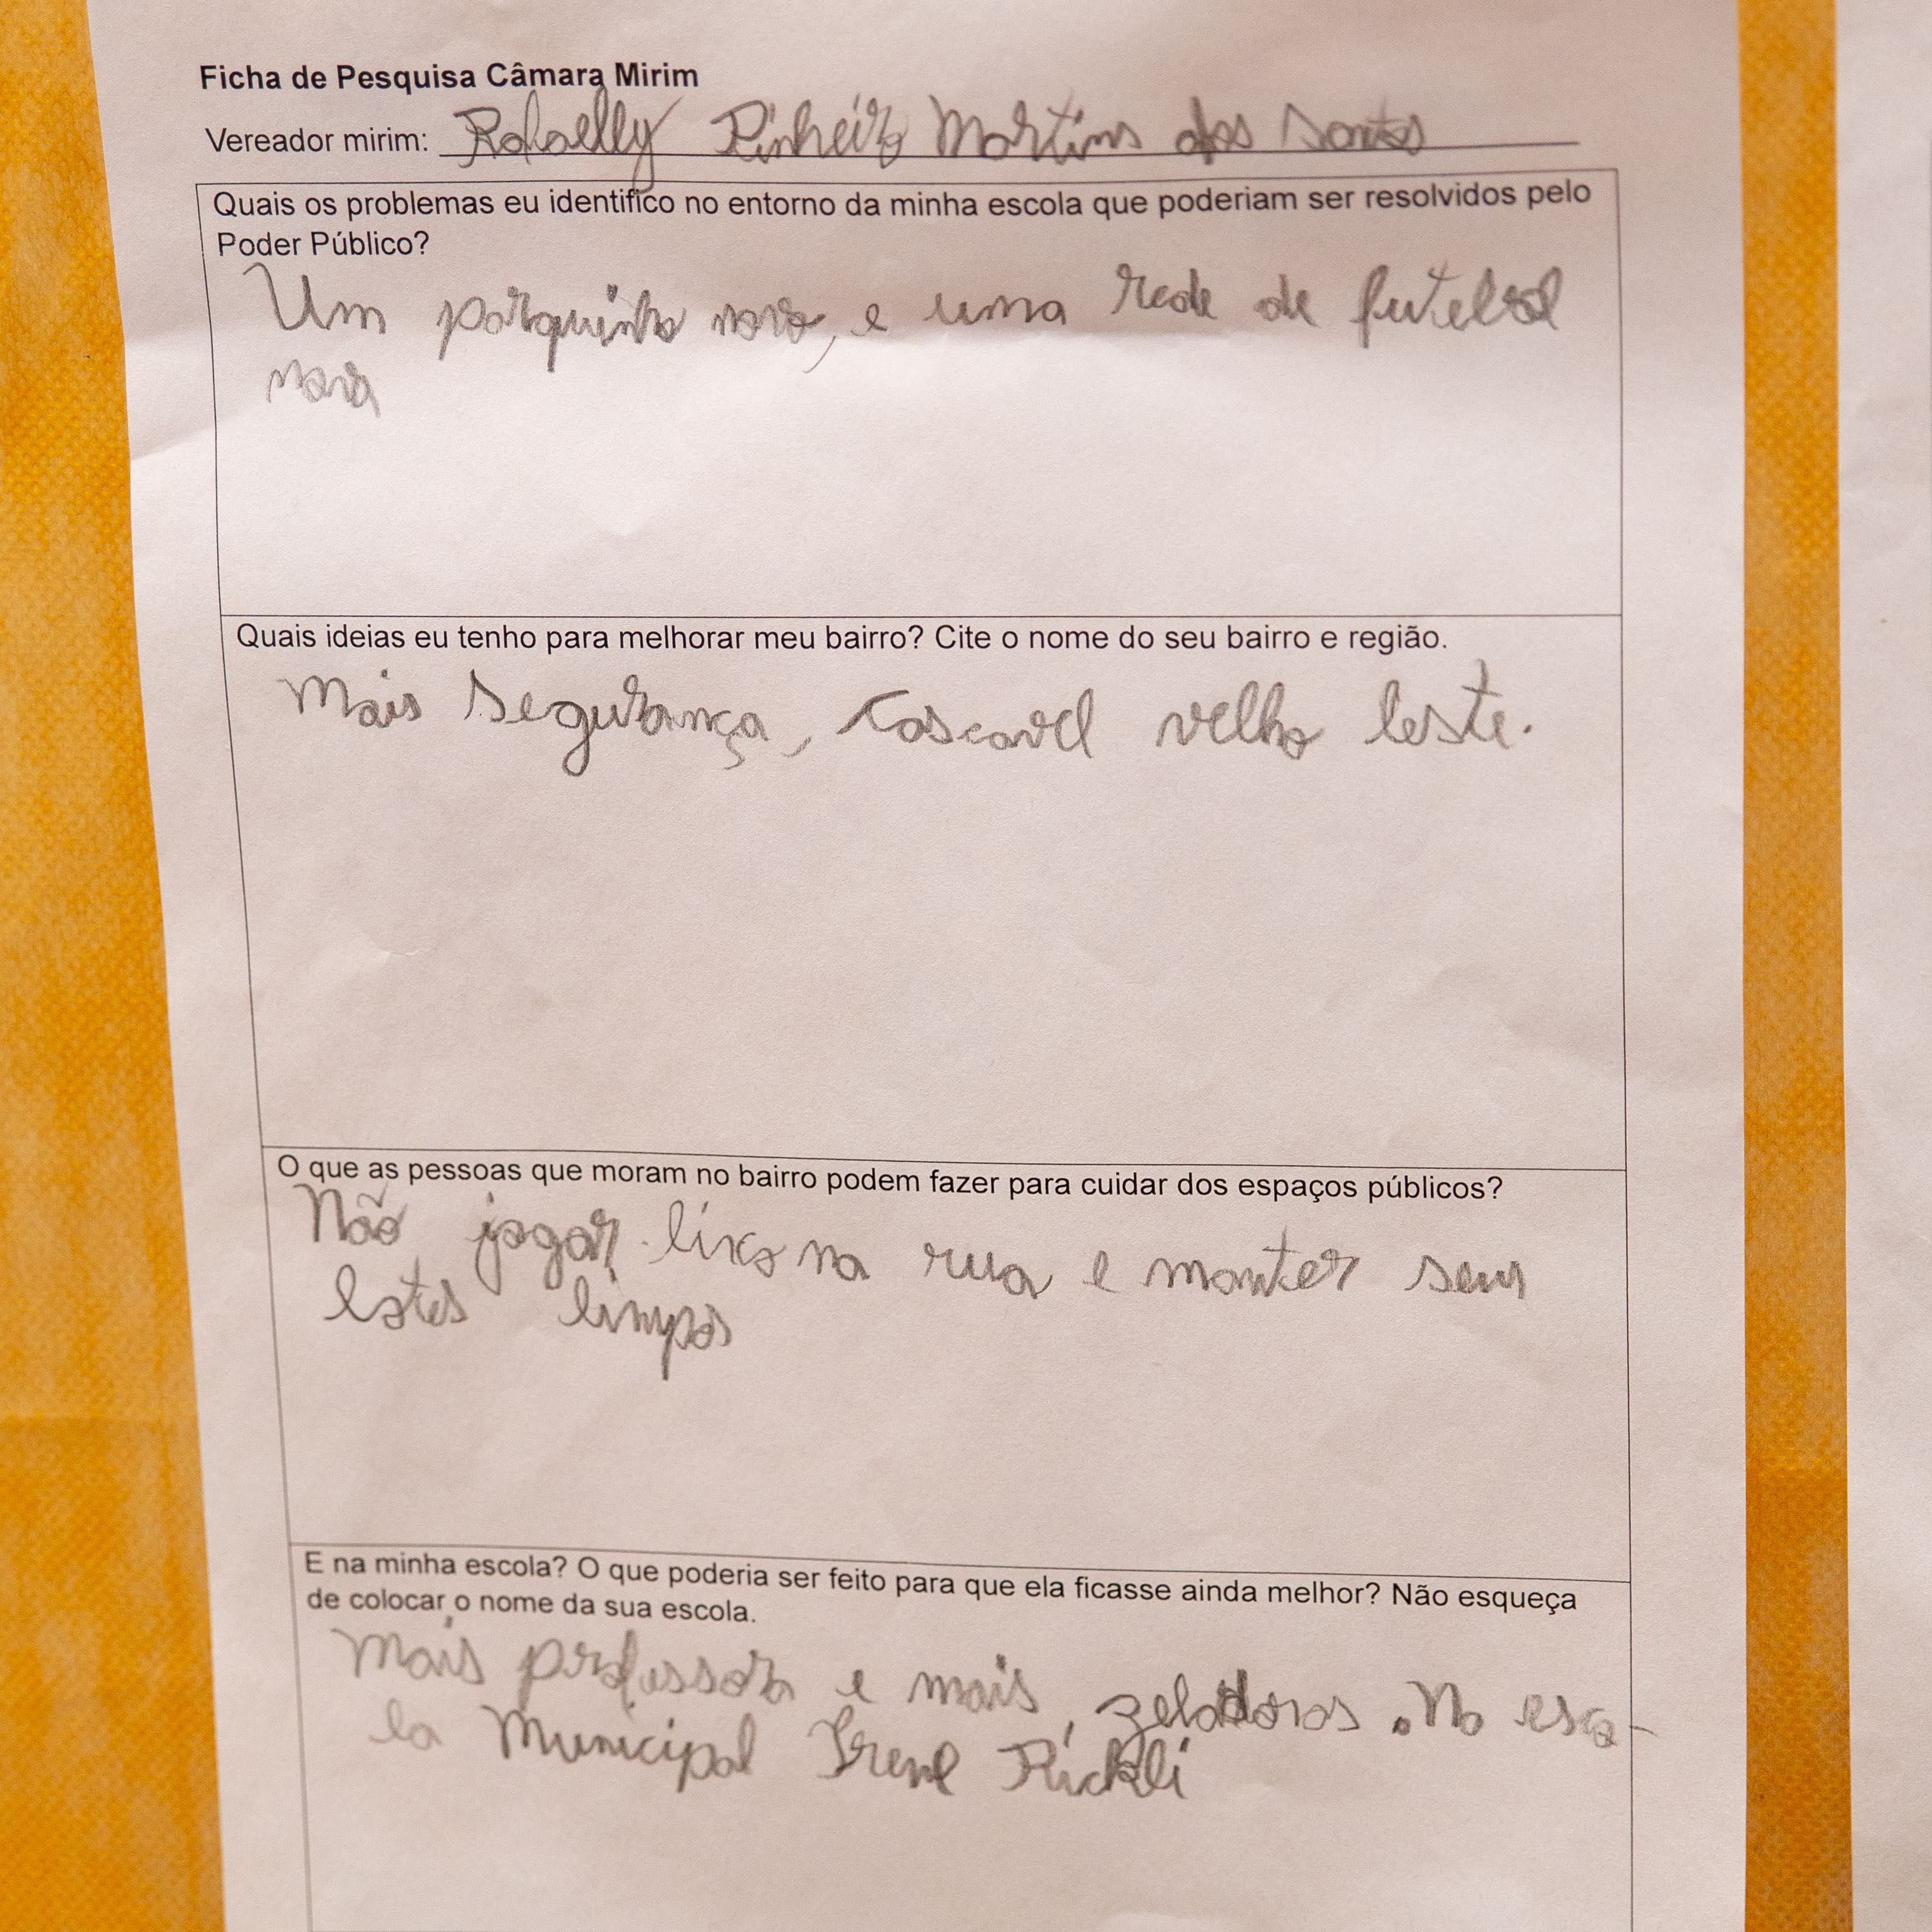 Ficha de Pesquisa Câmara Mirim
Vereador mirim: Pinheiro Martins dos Santos
Quais os problemas eu identifico no entorno da minha escola que poderiam ser resolvidos pelo
Poder Público?
Um parquinho novo, e uma rede de futebol
nova
Quais ideias eu tenho para melhorar meu bairro? Cite o nome do seu bairro e região.
Mais segurança, Cascavel velho leste.
O que as pessoas que moram no bairro podem fazer para cuidar dos espaços públicos?
Não jogar lixo na rua e manter seus
lotes limpos
E na minha escola? O que poderia ser feito para que ela ficasse ainda melhor? Não esqueça
de colocar o nome da sua escola.
Mais professora e mais, zeladoras. No esco-
la Municipal Irene Rickli